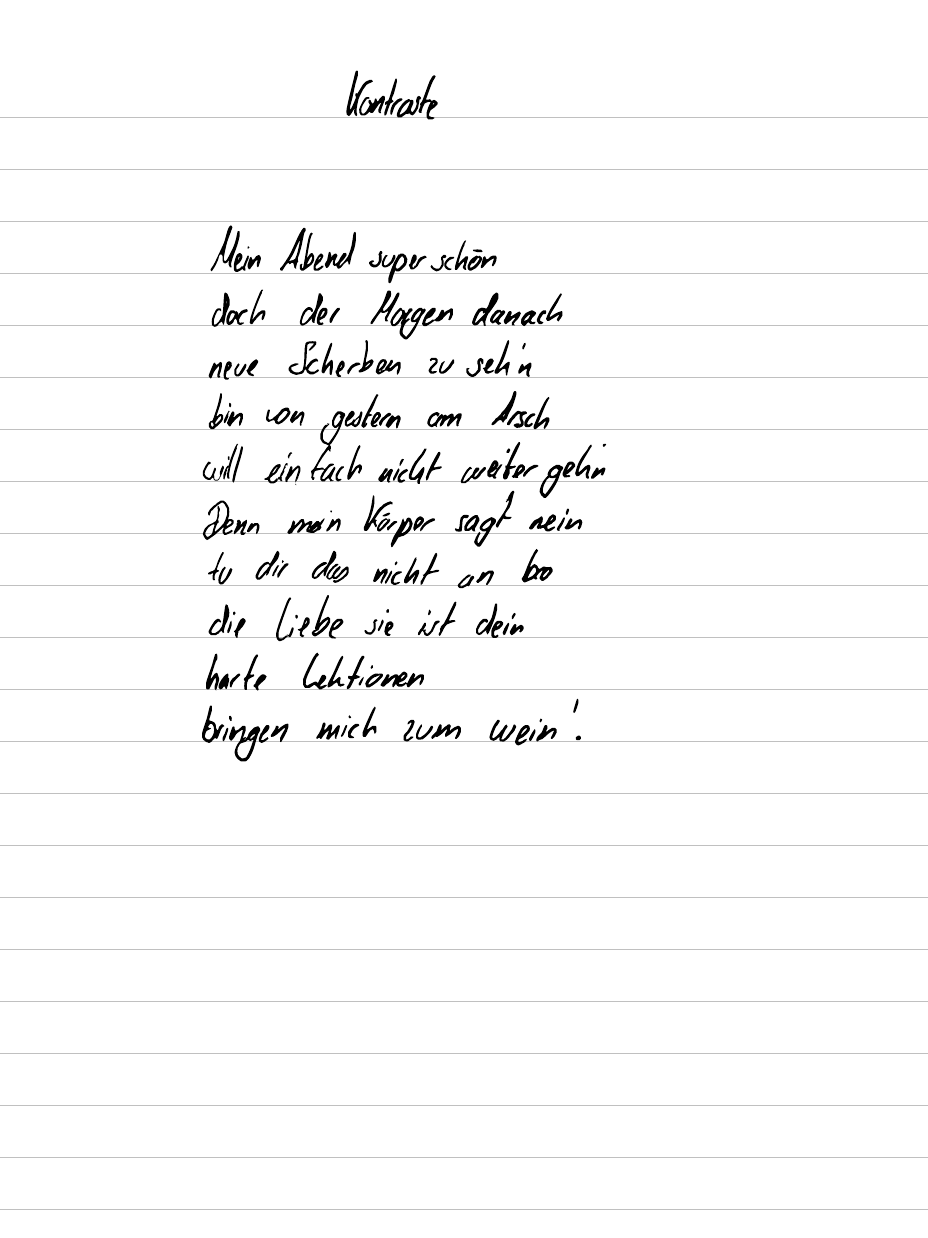 Kontraste
Mein Abend super schön
doch der Morgen danach
neue Scherben zu seh'n
bin von gestern am Arsch
will einfach nicht weiter geh'n
Denn mein Körper sagt nein
tu dir das nicht an bro
die Liebe sie ist dein
harte Lektionen
bringen mich zum wein'.